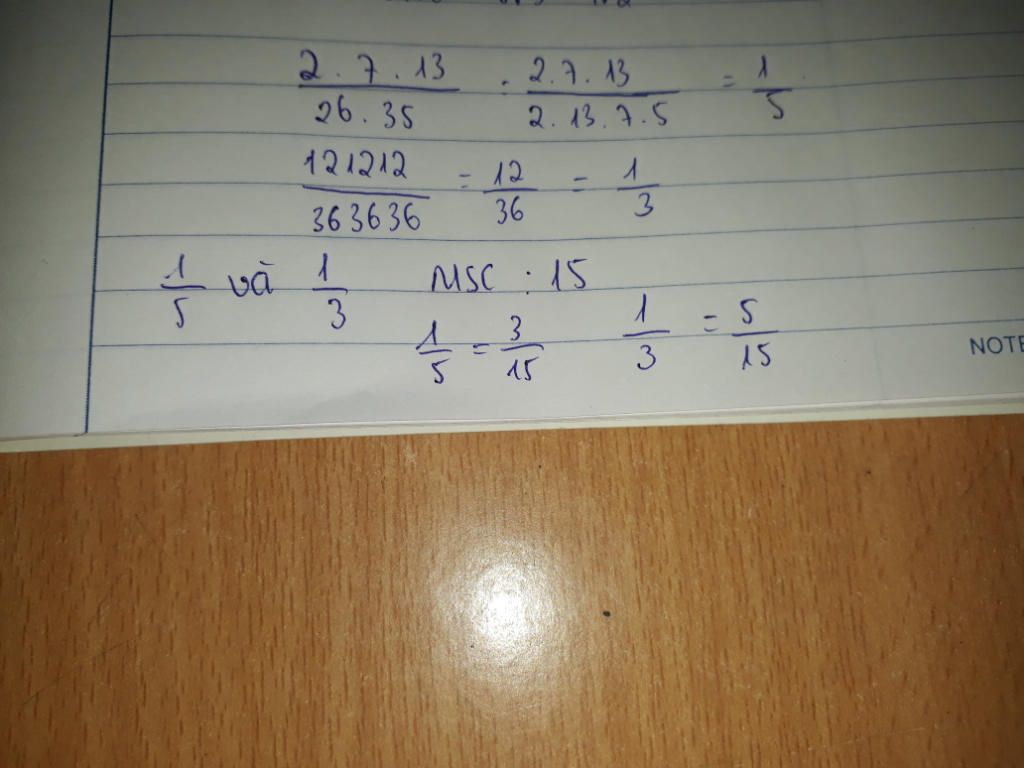 2 . 7 . 13 / 26 . 35 = 2 . 7 . 13 / 2 . 13 . 7 . 5 = 1 / 5
121212 / 363636 = 12 / 36 = 1 / 3
1 / 5 và 1 / 3 MSC : 15
1 / 5 = 3 / 15 1 / 3 = 5 / 15
NOTE